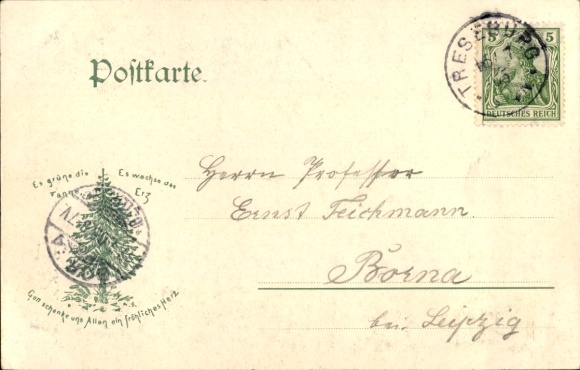 Postkarte.
TRESEBURG
5 5
DEUTSCHES REICH
Es grüne die Tanne
Es wachse das Erz
Gott schenke uns Allen ein fröhliches Herz
Herrn Professor
Ernst Teichmann
Borna
bei Leipzig